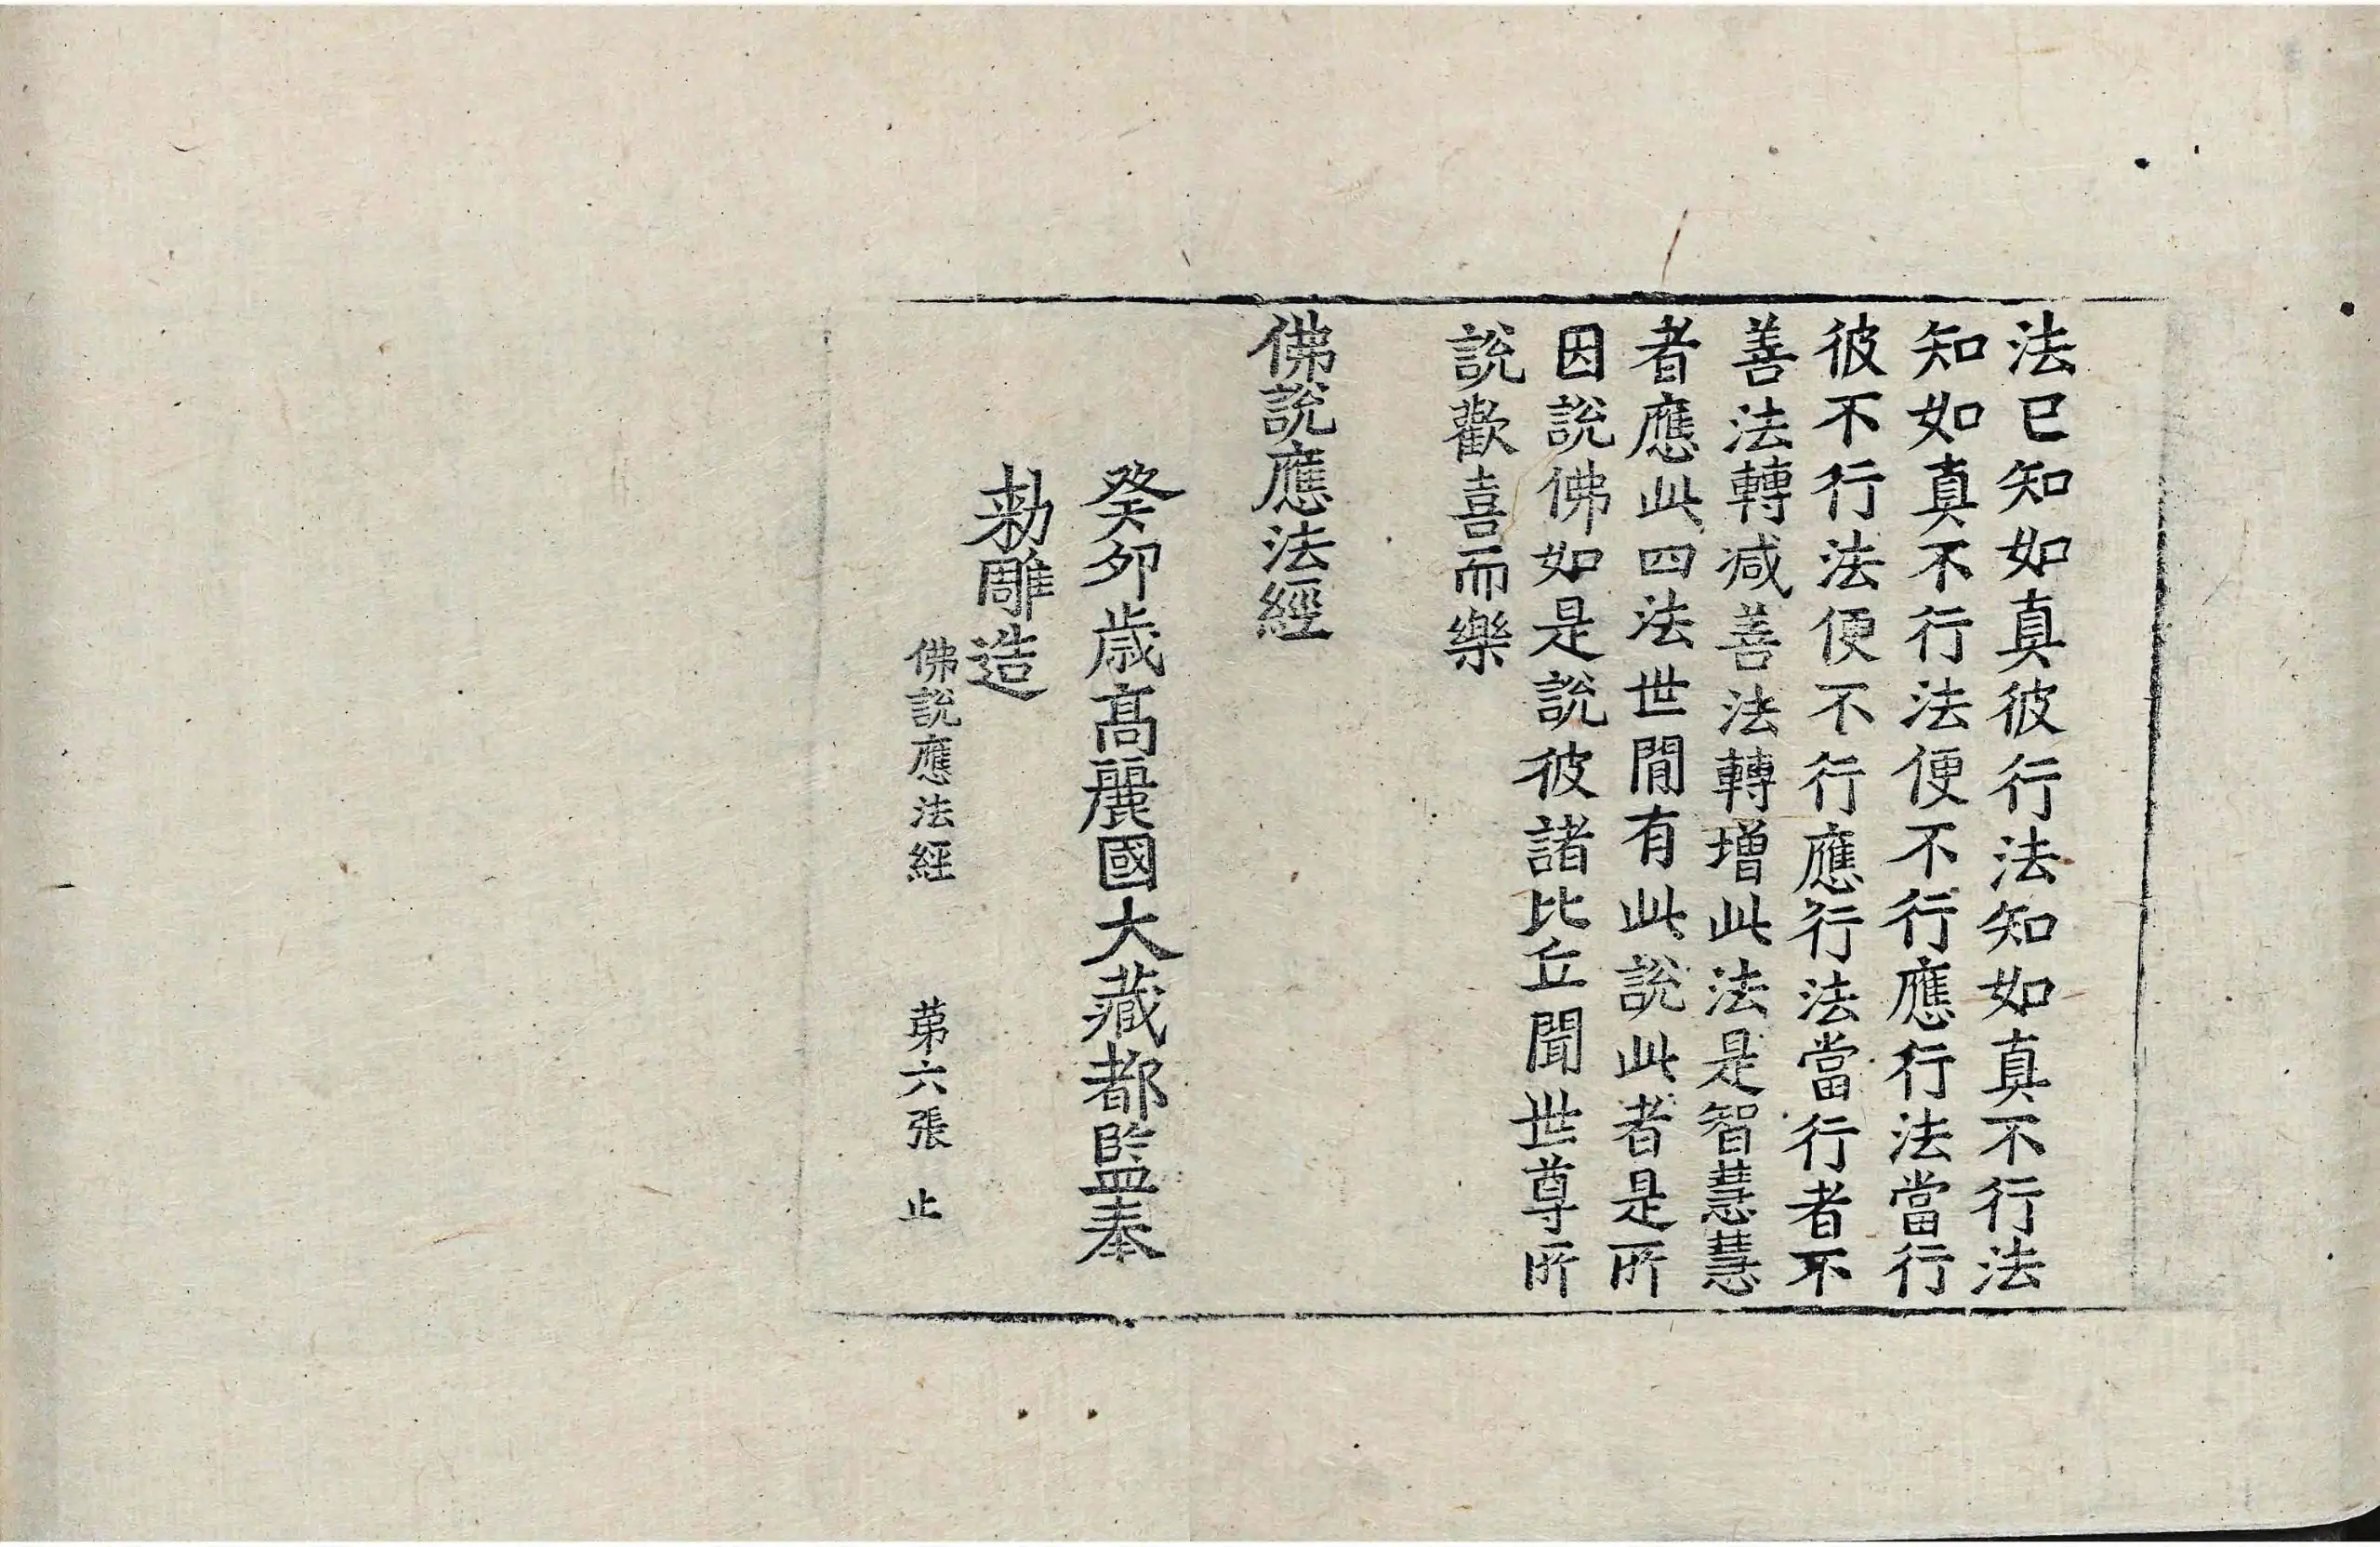 法已知如真彼行法知如真不行法
知如真不行法便不行應行法當行
彼不行法便不行應行法當行者不
善法轉減善法轉增此法是智慧慧
者應此四法世閒有此說此者是所
因說佛如是說彼諸比丘聞世尊所
說歡喜而樂
佛說應法經
癸卯歲高麗國大藏都監奉
勅雕造
佛說應法經 苐六張 止